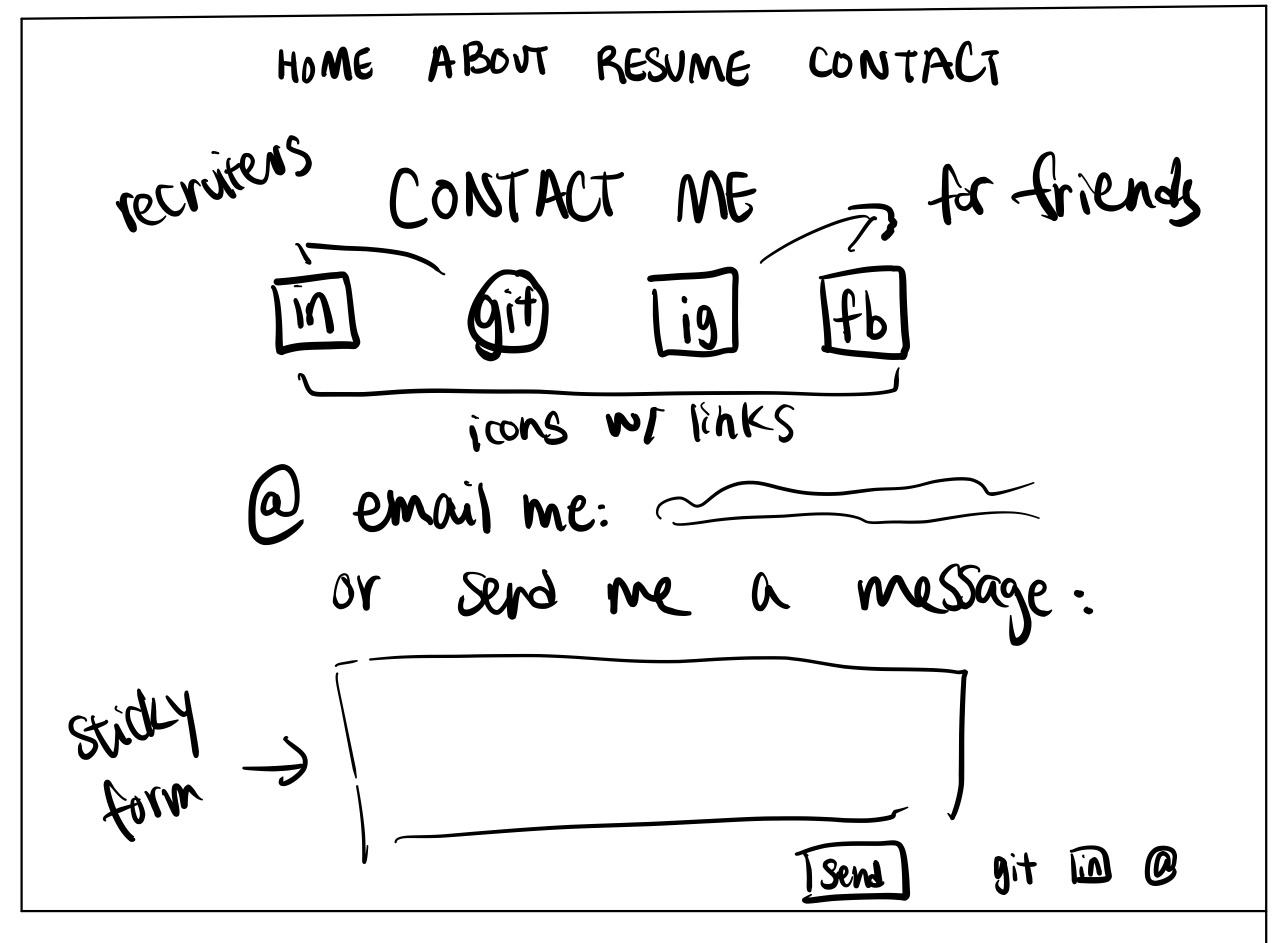 HOME ABOUT RESUME CONTACT
recruiters
CONTACT ME
for friends
in git ig fb
icons w/ links
@ email me:
or send me a message:
sticky
form
Send
git in @